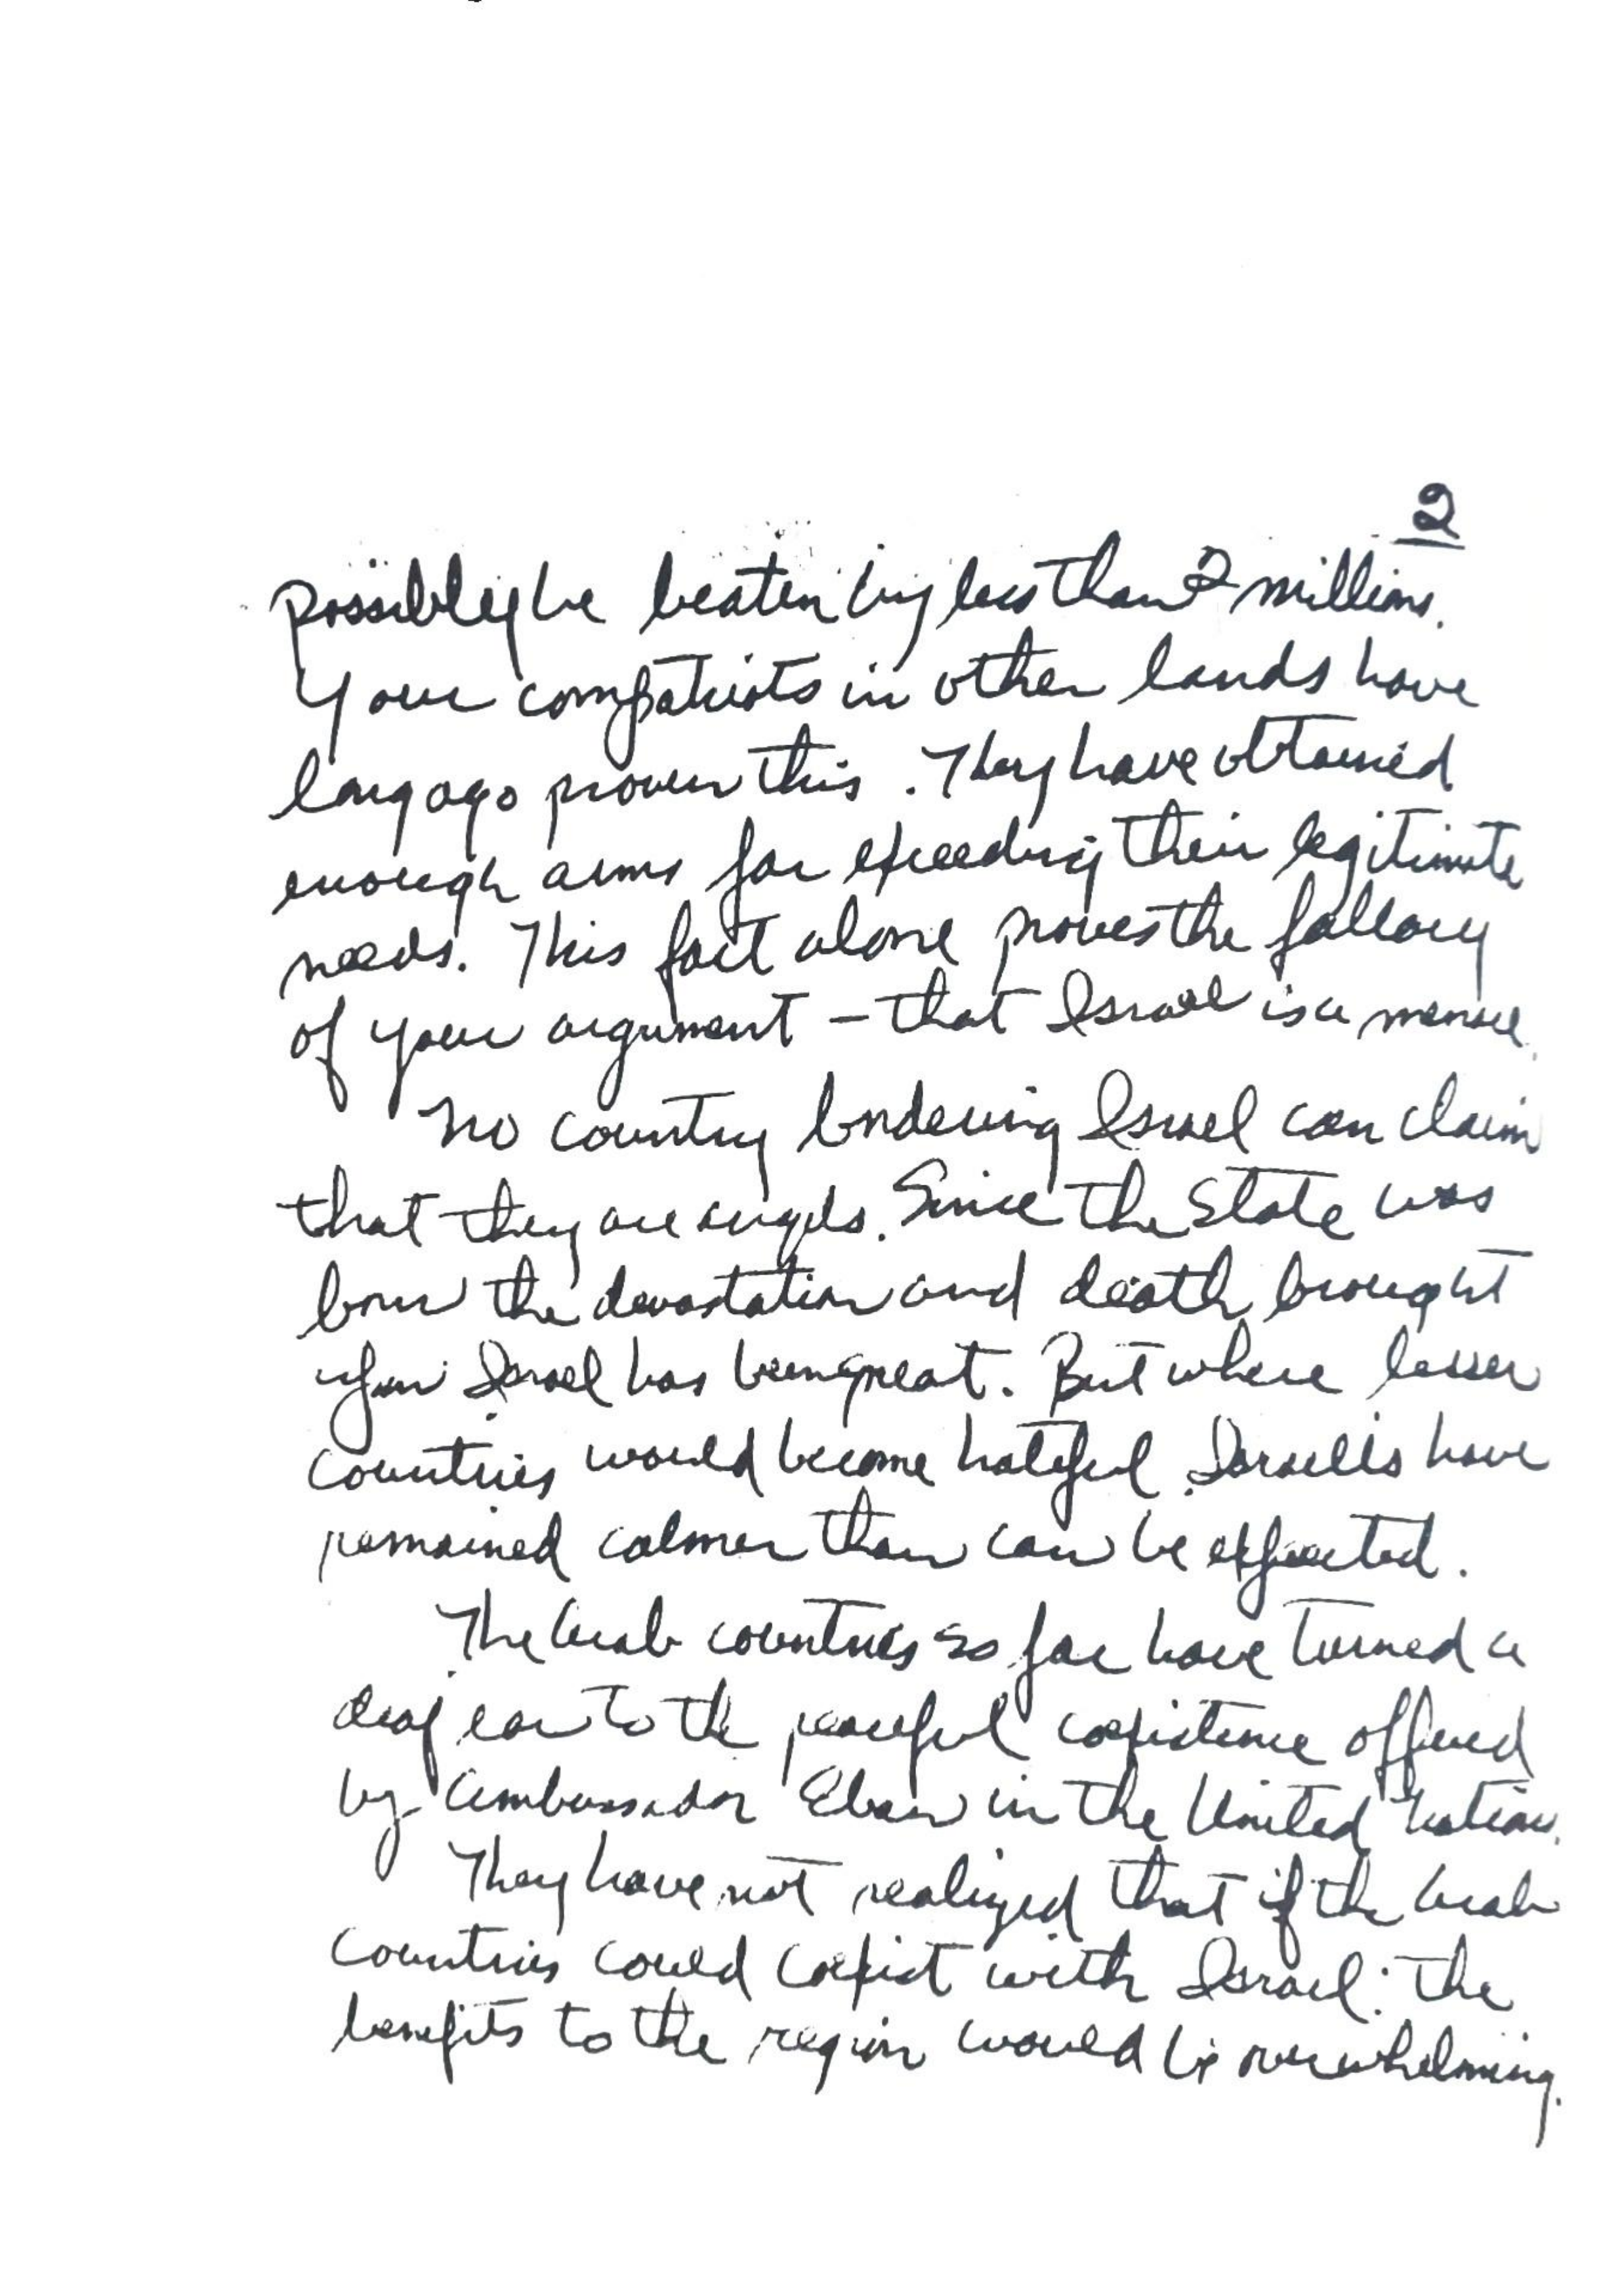 2
possibly be beaten by less than 2 millions.
Your compatriots in other lands have
long ago proven this. They have obtained
enough arms far exceeding their legitimate
needs. This fact alone proves the fallacy
of your argument – that Israel is a menace.
No country bordering Israel can claim
that they are angels. Since the State was
born the devastation and death brought
upon Israel has been great. But where lesser
countries would become hateful Israelis have
remained calmer than can be expected.
The Arab countries so far have turned a
deaf ear to the peaceful coexistence offered
by Ambassador Eban in the United Nations.
They have not realized that if the Arab
countries could coexist with Israel: the
benefits to the region would be overwhelming.